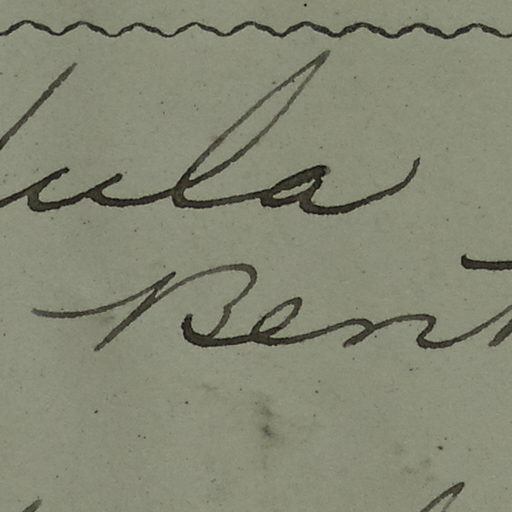 ula
Bent